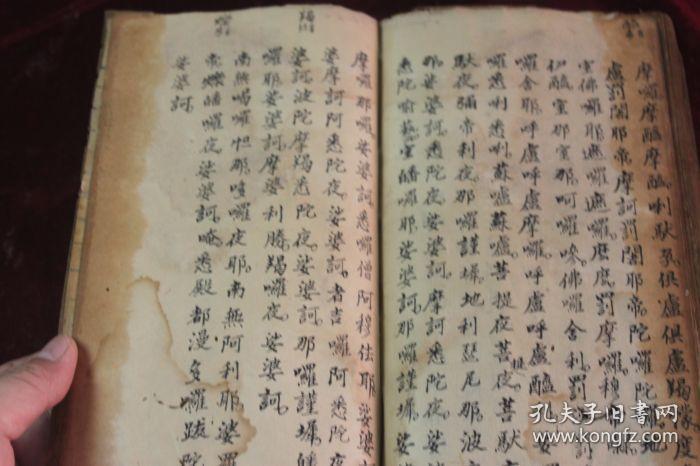 摩囉摩醯摩醯唎馱孕俱盧俱盧羯
盧罰闍耶帝摩訶罰闍耶帝陀囉陀地
室佛囉耶遮囉遮囉麼麼罰摩囉穆
伊醯室那室那呵囉嘇佛囉舍利罰
囉舍耶呼盧呼盧摩囉呼盧呼盧醯
囉悉唎悉唎蘇嚧蘇嚧菩提夜菩提夜菩馱
馱夜彌帝利夜那囉謹墀地利瑟尼那波
那娑婆訶悉陀夜娑婆訶摩訶悉陀夜娑
悉陀喻藝室皤囉耶娑婆訶那囉謹墀娑
摩囉那囉娑婆訶悉囉僧阿穆佉耶娑婆
婆摩訶阿悉陀夜娑婆訶者吉囉阿悉陀
娑婆訶波陀摩羯悉陀夜娑婆訶那囉謹墀皤
囉耶娑婆訶摩婆利勝羯囉夜娑婆訶
南無喝囉怛那哆囉夜耶南無阿利耶婆羅
帝爍皤囉夜娑婆訶唵悉殿都漫多囉跋陀
娑婆訶
孔夫子旧书网
www.kongfz.com